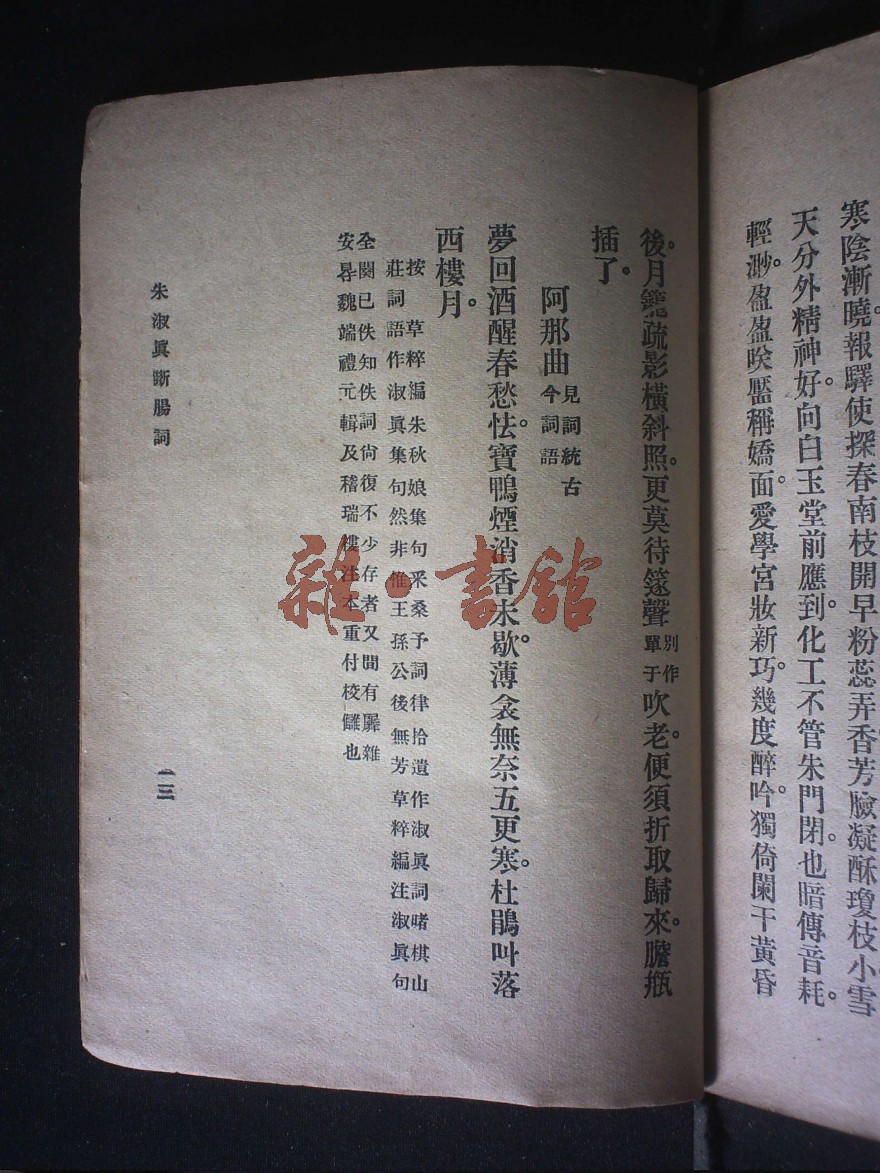 寒陰漸曉。報驛使探春南枝開早粉蕊弄香芳臉凝酥瓊枝小雪
天分外精神好。向白玉堂前應到。化工不管朱門閉。也暗傳音耗。
輕渺。盈盈笑靨稱嬌面。愛學宮妝新巧。幾度醉吟。獨倚闌干黃昏
後。月籠疏影橫斜照。更莫待筵聲別作單于吹老。便須折取歸來。膽瓶
插了。
阿那曲見詞統古今詞語
夢回酒醒春愁怯。寶鴨煙消香未歇。薄衾無奈五更寒。杜鵑叫落
西樓月。
按草粹編朱秋娘集句采桑予詞律拾遺作淑眞詞啫棋山
莊詞語作淑眞集句然非惟王孫公後無芳草粹編注淑眞句
全闋已佚知佚詞尙復不少存者又間有羼雜
安㝵魏端禮元輯及稽瑞樓注本重付校讎也
朱淑眞斷腸詞
一三
雜·書館